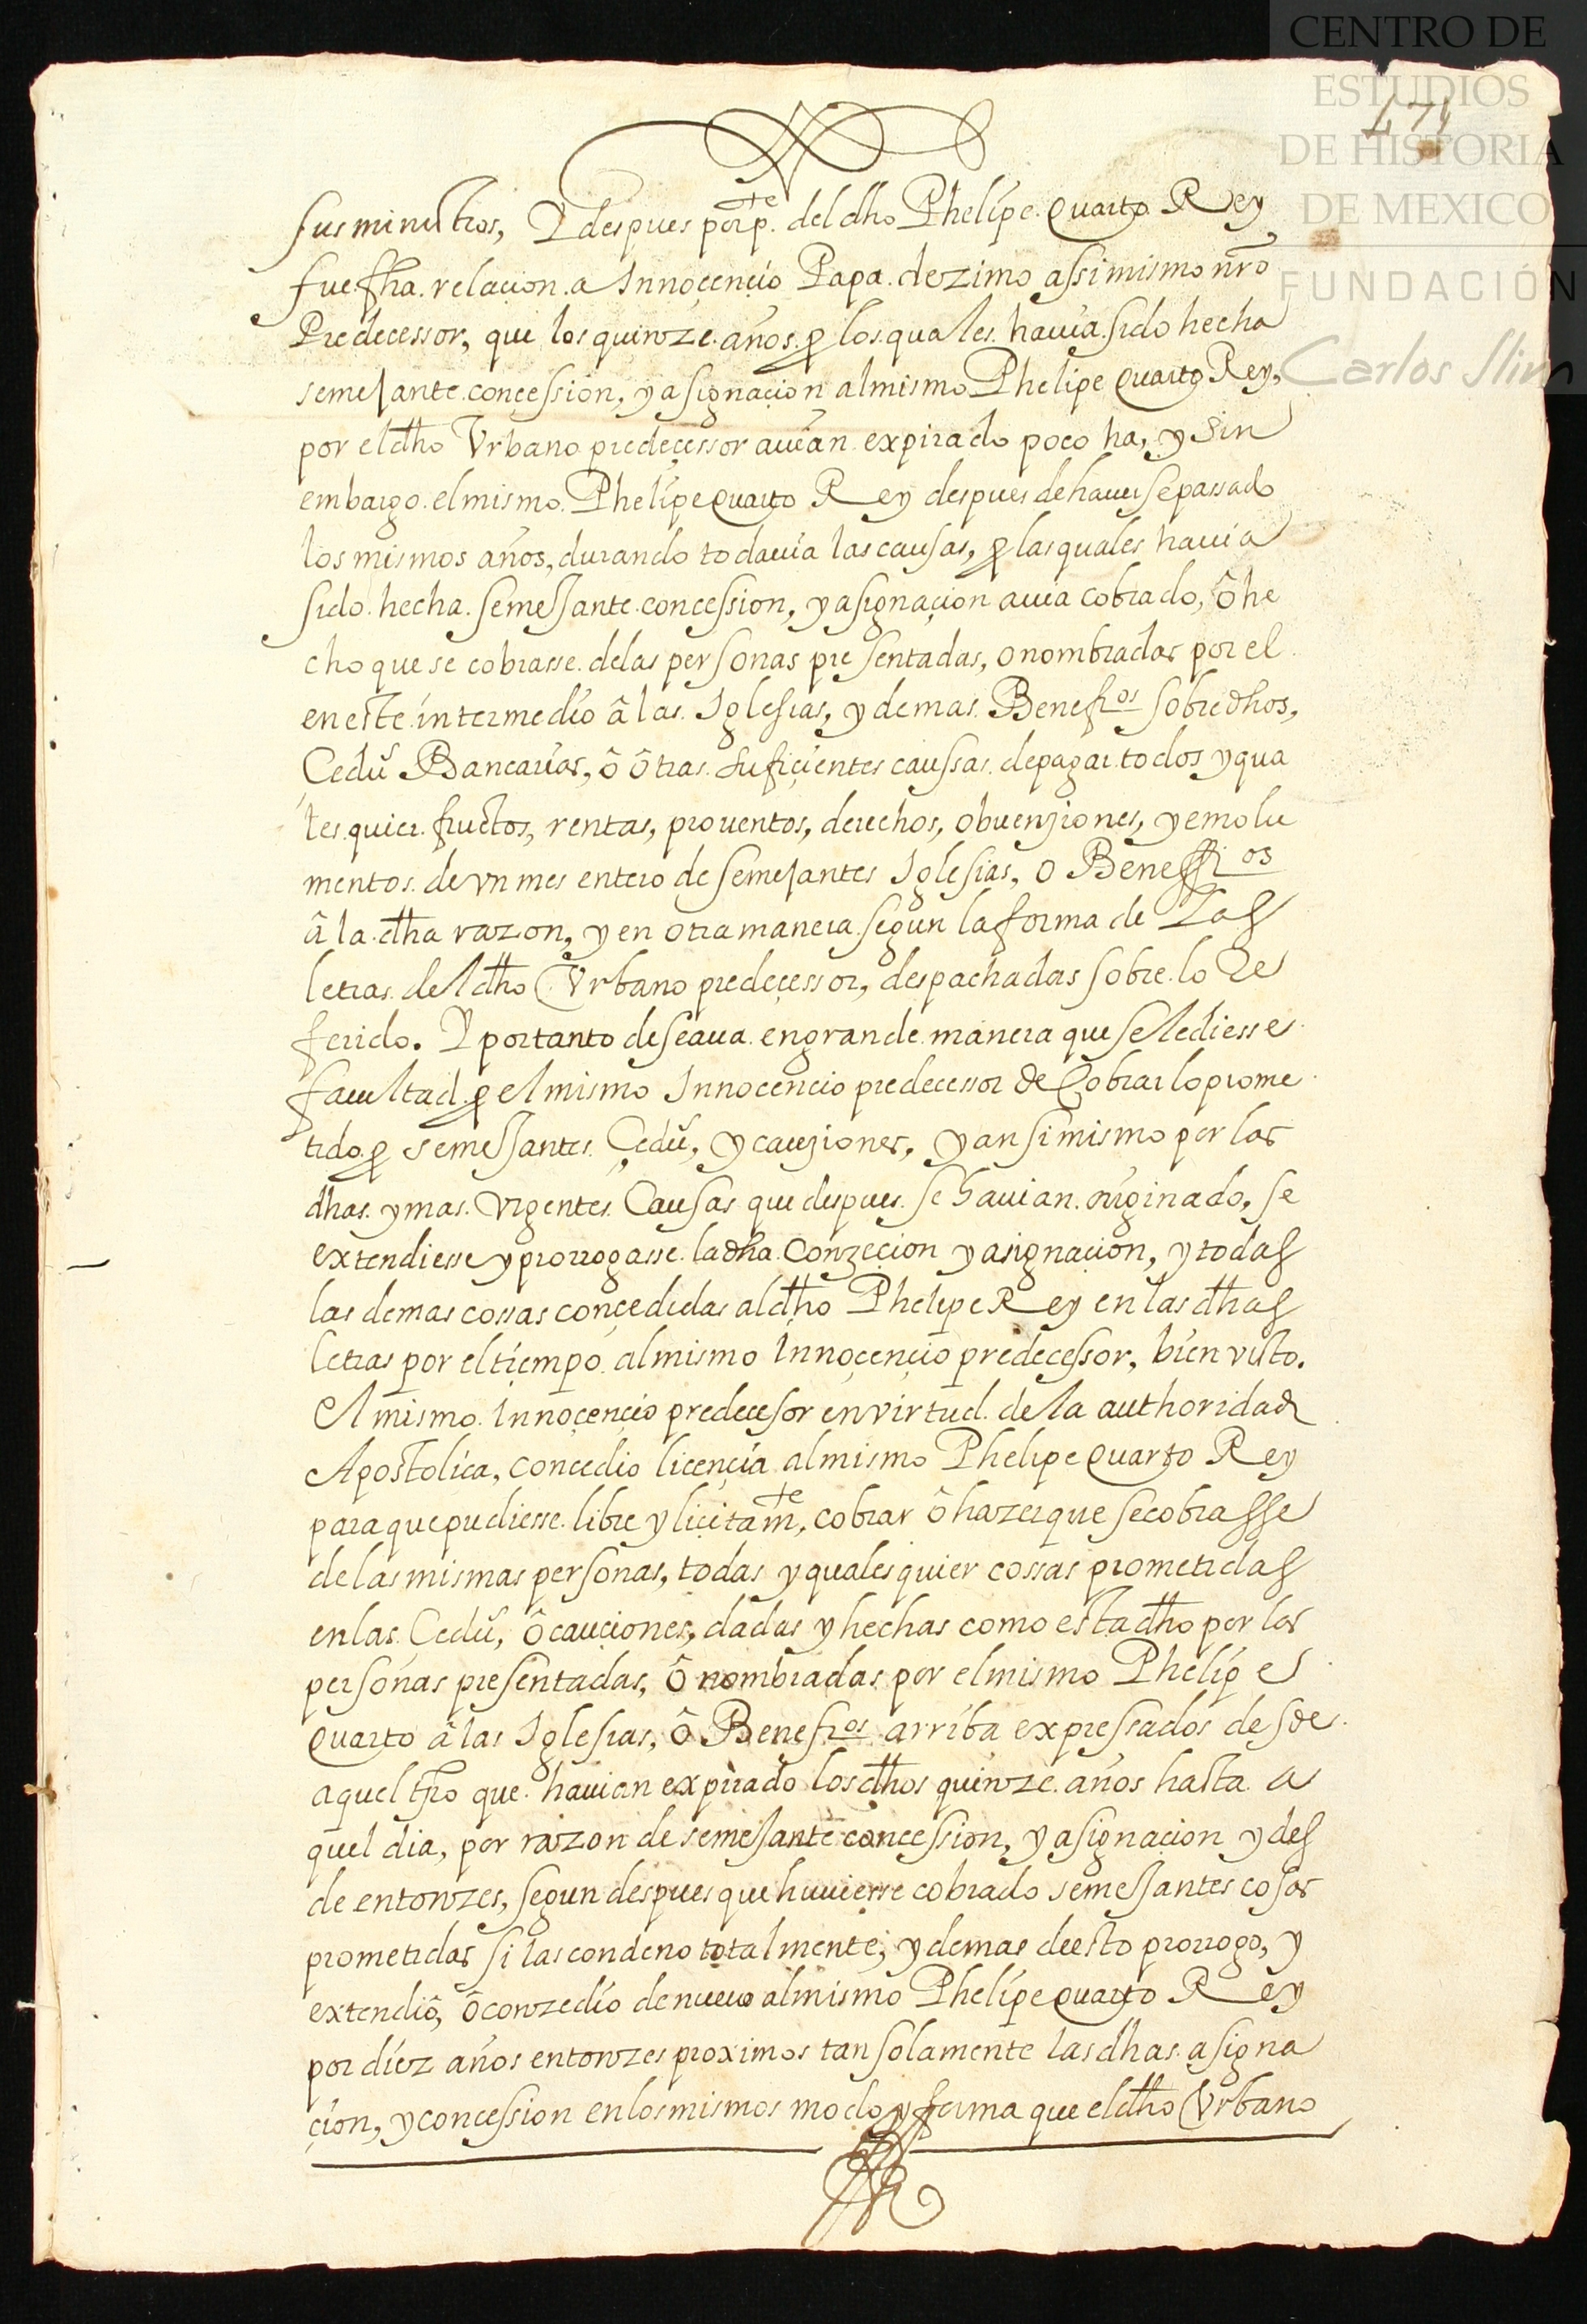 CENTRO DE
ESTUDIOS
DE HISTORIA
DE MEXICO
FUNDACIÓN
Carlos Slim
471
sus ministros, Y despues por p.te del dho Phelipe Quarto Rey
fue fha. relaçion. a Innoçençio Papa. dezimo assimismo nrõ
Predecessor, que los quinze años. p los quales. hauia. sido hecha
semejante. conçession, y asignaçion al mismo Phelipe Quarto Rey,
por el dho Vrbano predeçessor auian expirado poco ha, y Sin
embargo. el mismo. Phelipe Quarto Rey despues de hauerse passado
los mismos años, durando todauia las causas, p las quales hauia
sido. hecha. semejante. concession, y asignaçion auia cobrado, ô he
cho que se cobrasse. de las personas presentadas, o nombradas por el
en este intermedio â las. Iglesias, y demas. Benefios sobredhos,
Çedu Bancarias, ô ôtras. suficientes caussas. de pagar. todos y qua
les quier. fructos, rentas, prouentos, derechos, obuenziones, y emolu
mentos. de vn mes entero de semejantes Iglesias, o Beneffios
â la. dha razon, y en otra manera. segun la forma de Las
letras. del dho Vrbano predeçessor, despachadas sobre. lo Re
ferido. Y por tanto deseaua. en grande. manera que se le diesse
facultad. p el mismo Innocencio predecessor de Cobrar lo prome
tido. p semejantes. Çedu, y cauziones, y ansimismo por las
dhas. y mas. Vrgentes. Causas que despues. se hauian. originado, se
extendiesse y prorrogasse. la dha. Conzeçion y asignaçion, y todas
las demas cossas conçedidas al dho Phelipe Rey en las dhas
letras por el tiempo. al mismo Innoçençio predecessor, bien visto.
El mismo. Innoçençio predecesor en virtud. de la authoridad
Apostolica, concedio licençia al mismo Phelipe Quarto Rey
para que pudiesse. libre y liçitam.te, cobrar ô hazer que se cobrasse
de las mismas personas, todas y quales quier cossas prometidas
en las. Cedu, ô cauçiones, dadas y hechas como esta dho por las
personas presentadas, ô nombradas por el mismo Phelipe
Quarto â las Iglesias, ô Benefios arriba expressados desde
aquel tpo que. hauian expirado los dhos quinze. años hasta a
quel dia, por razon de semejante concession, y asignaçion y des
de entonzes, segun despues que huuiesse cobrado semejantes cosas
prometidas si las condeno totalmente; y demas de esto prorrogo, y
extendiô, ô conzedio de nueuo al mismo Phelipe Quarto Rey
por diez años entonzes proximos tan solamente las dhas. asigna
çion, y concession en los mismos modo y forma que el dho Vrbano